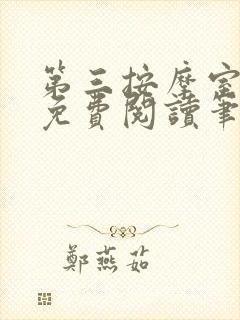 第三按摩室
免費閱讀筆
鄭燕茹